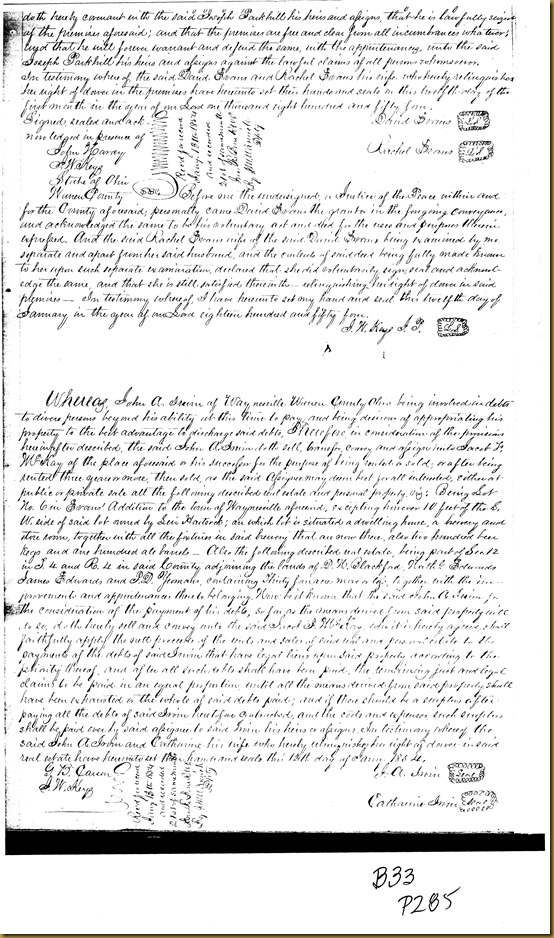 doth hereby covenant with the said Joseph Parkhill his heirs and assigns, that he is lawfully seized
of the premises aforesaid; and that the premises are free and clear from all incumbrances whatever;
and that he will forever warrant and defend the same, with the appurtenances, unto the said
Joseph Parkhill his heirs and assigns against the lawful claims of all persons whomsoever.
In testimony whereof, the said David Evans and Rachel Evans his wife who hereby relinquishes
her right of dower in the premises have hereunto set their hands and seals on this twelfth day of the
first month in the year of our Lord one thousand eight hundred and fifty four.
Signed, sealed and ack-
David Evans
nowledged in presence of
John
Rachel Evans
J. W. Keys
State of Ohio
Warren County
Before me the undersigned, a Justice of the Peace within and
for the County aforesaid; personally came David Evans the grantor in the foregoing conveyance,
and acknowledged the same to be his voluntary act and deed for the uses and purposes therein
expressed. And the said Rachel Evans wife of the said David Evans being examined by me
separate and apart from her said husband, and the contents of said deed being fully made known
to her upon such separate examination, declared that she did voluntarily sign, seal and acknowl-
edge the same, and that she is still satisfied therewith - relinquishing her right of dower in said
premises - In testimony whereof, I have hereunto set my hand and seal this twelfth day of
January in the year of our Lord eighteen hundred and fifty four.
J. W. Keys J. P.
Whereas, John A. Irwin of Waynesville Warren County Ohio being involved in debts
to divers persons beyond his ability at this time to pay and being desirous of appropriating his
property to the best advantage to discharge said debts, Therefore in consideration of the provisions
hereinafter described, the said John A. Irwin doth sell, transfer, convey and assign unto Jacob F.
McKay of the place aforesaid or his successor for the purpose of being rented or sold, or after being
rented three years or more, then sold, as the said Assignee may deem best for all interested, either at
public or private sale all the following described real estate and personal property, viz; Being Lot
No. 6 in Evans' Addition to the town of Waynesville aforesaid, excepting however 10 feet of the S.
W. side of said lot owned by Levi Hartsock; on which lot is situated a dwelling house, a brewery and
store room, together with all the fixtures in said brewery that are now there, also two hundred beer
kegs and one hundred ale barrels - Also the following described real estate, being part of Sec 12
in T. 4 and R. 4 in said County adjoining the lands of
James Edwards and containing thirty four acres more or less, together with the im-
provements and appurtenances thereto belonging. Now be it known that the said John A. Irwin for
the consideration of the payment of his debts, so far as the means derived from said property will
do so, doth hereby sell and convey unto the said Jacob F. McKay, who it is hereby agreed shall
faithfully apply the nett proceeds of the rents and sales of said real and personal estate to the
payments of the debts of said Irwin that have legal liens upon said property according to the
priority thereof, and after all such debts shall have been paid, the remaining just and legal
claims to be paid in an equal proportion until all the means derived from said property shall
have been exhausted or the whole of said debts paid; and if there should be a surplus after
paying all the debts of said Irwin heretofore contracted, and the costs and expenses, such surplus
shall be paid over by said assignee to said Irwin his heirs or assigns. In testimony whereof the
said John A. Irwin and Catharine his wife who hereby relinquishes her right of dower in said
real estate have hereunto set their hands and seals this 13th day of Jany. 1854.
J. A. Irwin Seal
J. W. Keys
Catharine Irwin Seal
B33
P285